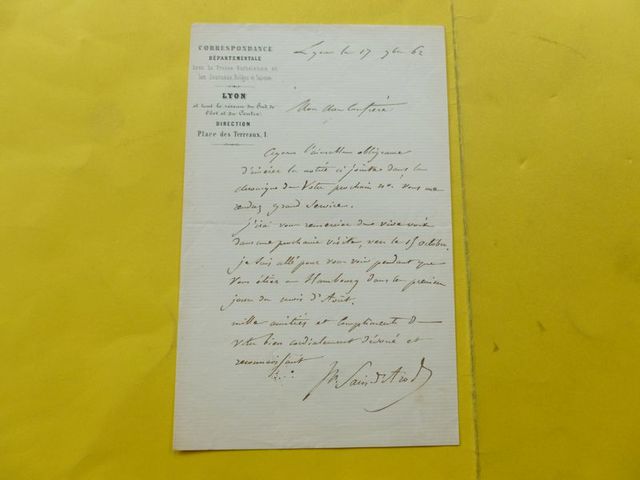 CORRESPONDANCE
DÉPARTEMENTALE
avec la Presse Parisienne et
les Journaux Belges et Suisses
LYON
et tout le réseau du Sud de
l'Est et du Centre
DIRECTION
Place des Terreaux, 1.
Lyon le 17 9bre 62
Mon cher Confrère
Ayez l'aimable obligeance
d'insérer la notice ci jointe dans la
chronique de Votre prochain n°. Vous me
rendrez grand Service.
J'irai vous remercier de vive voix
dans une prochaine visite, vers le 15 octobre,
je suis allé pour vous voir pendant que
vous étiez à Hambourg dans les premiers
jours du mois d'Août.
mille amitiés et compliments de
votre bien cordialement dévoué et
reconnaissant
Saint d'Arod